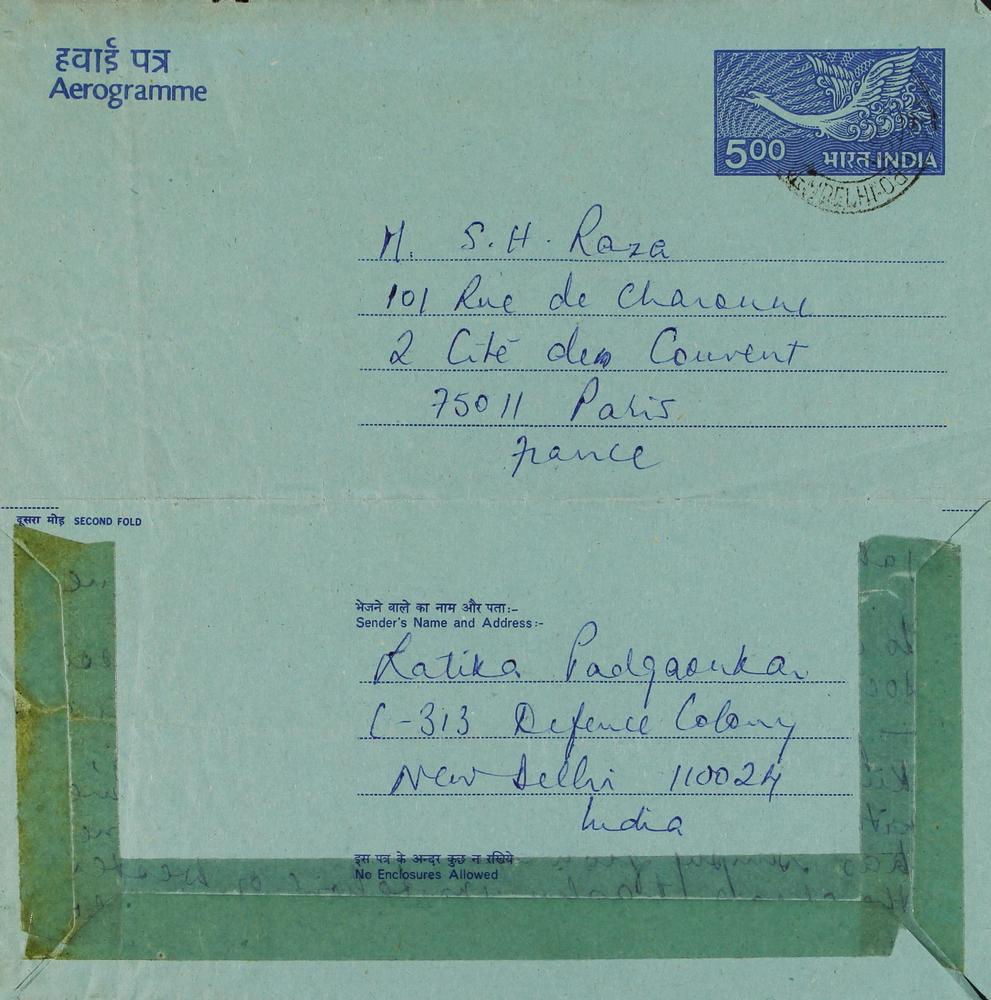 हवाई पत्र
Aerogramme
5.00 भारत INDIA
DELHI
M. S.H. Raza
101 Rue de Charonne
2 Cité des Couvent
75011 Paris
France
दूसरा मोड़ SECOND FOLD
भेजने वाले का नाम और पता:-
Sender's Name and Address:-
Latika Padgaonkar
C-313 Defence Colony
New Delhi 110024
India
इस पत्र के अन्दर कुछ न रखिये
No Enclosures Allowed